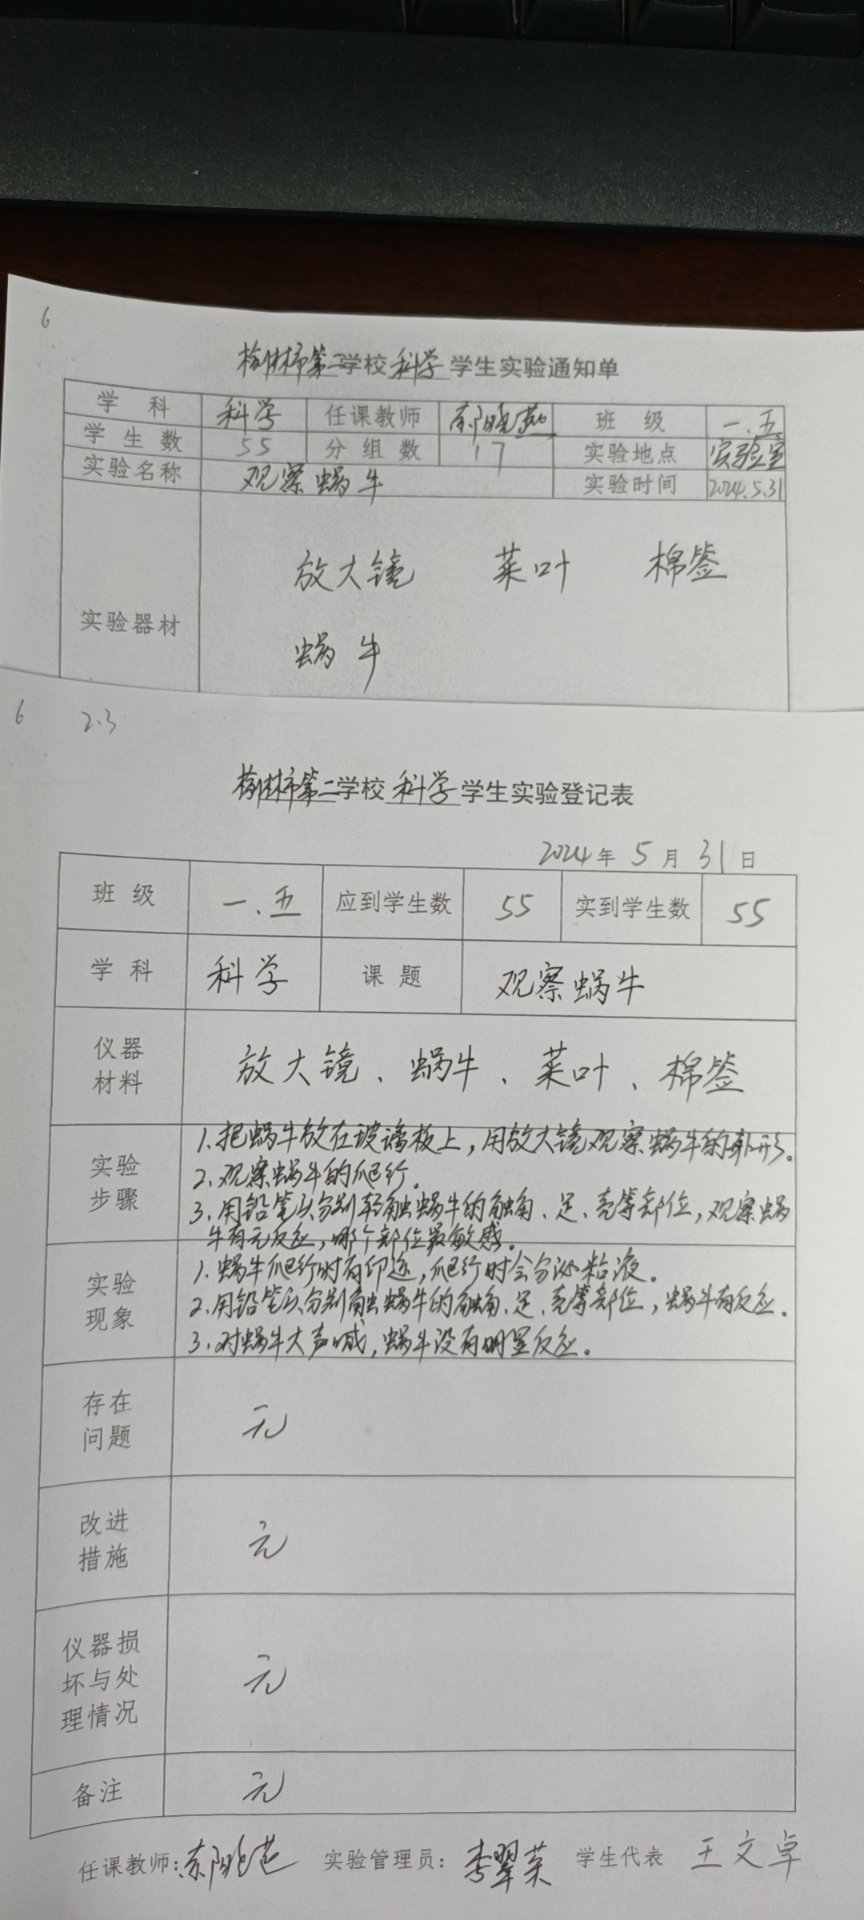 6
榆林市第二学校科学学生实验通知单
学 科 科学 任课教师 郝晓燕 班 级 一.五
学生数 55 分组数 17 实验地点 实验室
实验名称 观察蜗牛 实验时间 2024.5.31
放大镜 菜叶 棉签
实验器材
蜗牛
6 2.3
榆林市第二学校科学学生实验登记表
2024年5月31日
班 级 一.五 应到学生数 55 实到学生数 55
学 科 科学 课 题 观察蜗牛
仪器材料 放大镜、蜗牛、菜叶、棉签
实验步骤
1.把蜗牛放在玻璃板上，用放大镜观察蜗牛的外形。
2.观察蜗牛的爬行。
3.用铅笔头分别轻触蜗牛的触角、足、壳等部位，观察蜗
牛有无反应，哪个部位最敏感。
实验现象
1.蜗牛爬行时有印迹，爬行时会分泌粘液。
2.用铅笔头分别触蜗牛的触角、足、壳等部位，蜗牛有反应。
3.对蜗牛大声喊，蜗牛没有明显反应。
存在问题 无
改进措施 无
仪器损坏与处理情况 无
备注 无
任课教师： 实验管理员：李翠英 学生代表 王文卓